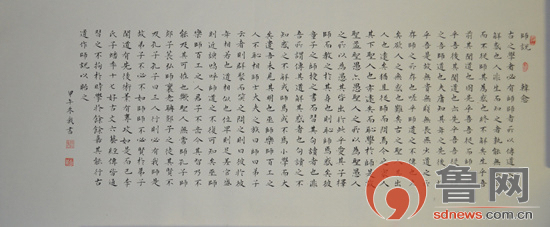 師說 韓愈
古之學者必有師師者所以傳道受業
解惑也人非生而知之者孰能無惑
惑而不從師其為惑也終不解矣生乎吾
前其聞道也固先乎吾吾從而師之生
乎吾後其聞道也亦先乎吾吾從而師之
吾師道也夫庸知其年之先後生於
吾乎是故無貴無賤無長無少道之所
存師之所存也嗟乎師道之不傳也久
矣欲人之無惑也難矣古之聖人其出
人也遠矣猶且從師而問焉今之眾人
其下聖人也亦遠矣而恥學於師是故
聖益聖愚益愚聖人之所以為聖愚人
之所以為愚其皆出於此乎愛其子擇
師而教之於其身也則恥師焉惑矣彼
童子之師授之書而習其句讀者也非
吾所謂傳其道解其惑者也句讀之不
知惑之不解或師焉或不焉小學而大
遺吾未見其明也巫醫樂師百工之
人不恥相師士大夫之族曰師曰弟子
云者則群聚而笑之問之則曰彼與彼
年相若也道相似也位卑則足羞官盛
則近諛嗚呼師道之不復可知矣巫醫
樂師百工之人君子不齒今其智乃
反不能及其可怪也歟聖人無常師孔子師
郯子萇弘師襄老聃郯子之徒其賢不
及孔子孔子曰三人行則必有我師是
故弟子不必不如師師不必賢於弟子
聞道有先後術業有專攻如是而已李
氏子蟠年十七好古文六藝經傳皆通
習之不拘於時學於余余嘉其能行古
道作師說以貽之
甲午冬
書
鲁网
sdnews.com.cn